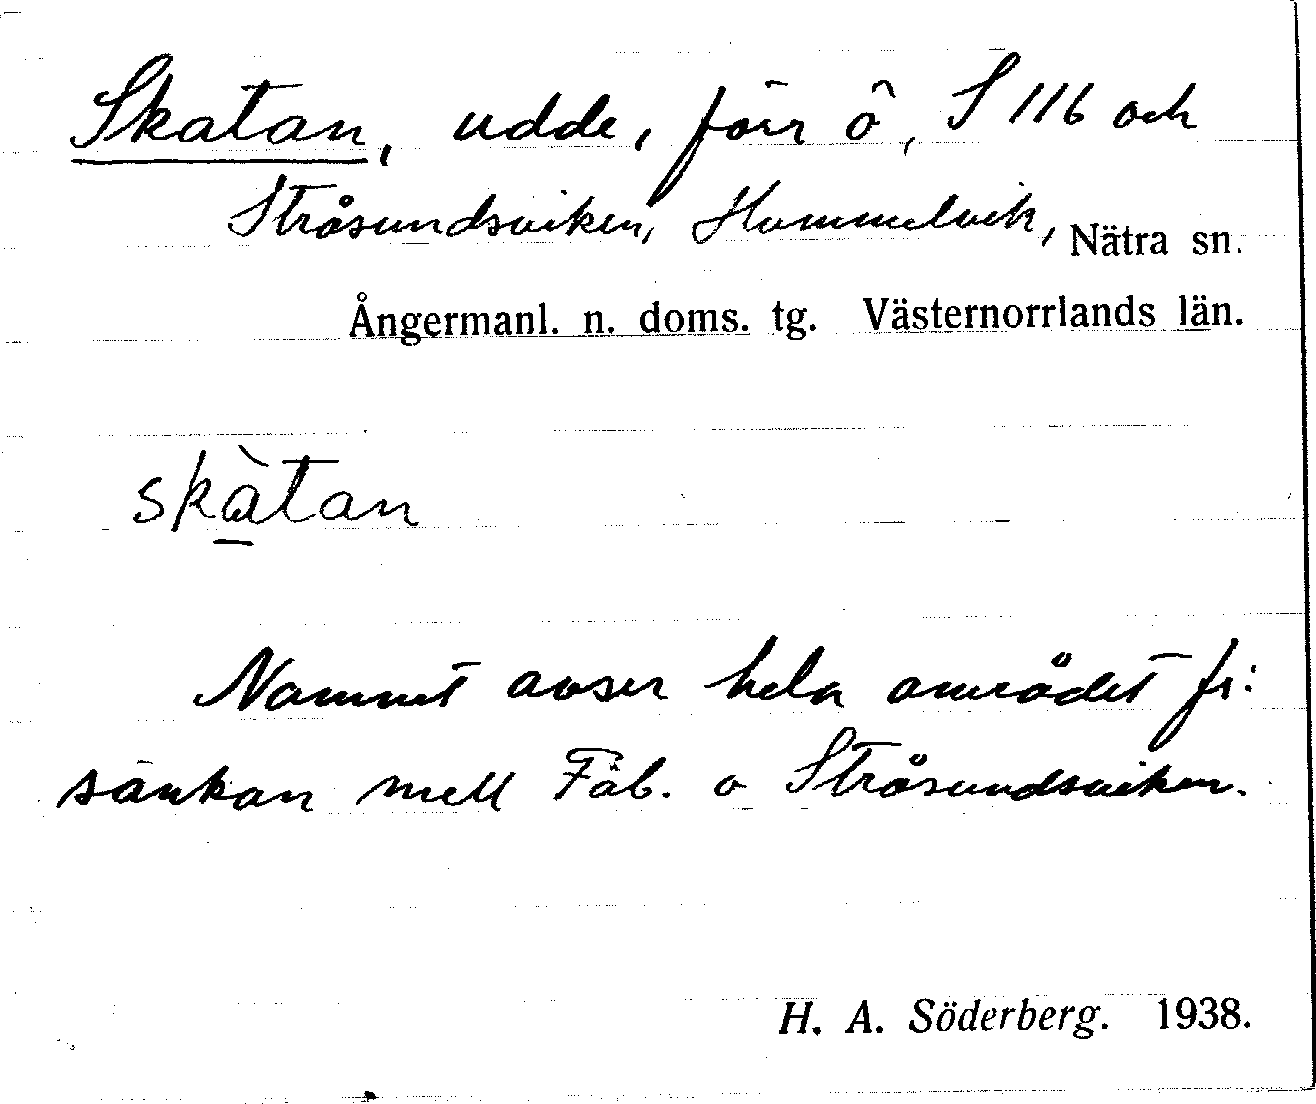 Skatan, udde, förr ö, S 116 och
Stråsundsviken, Hummelvik, Nätra sn.
Ångermanl. n. doms. tg. Västernorrlands län.
skàtan
Namnet avser hela området fr:
sänkan mell Fäb. o Stråsundsviken.
H. A. Söderberg. 1938.